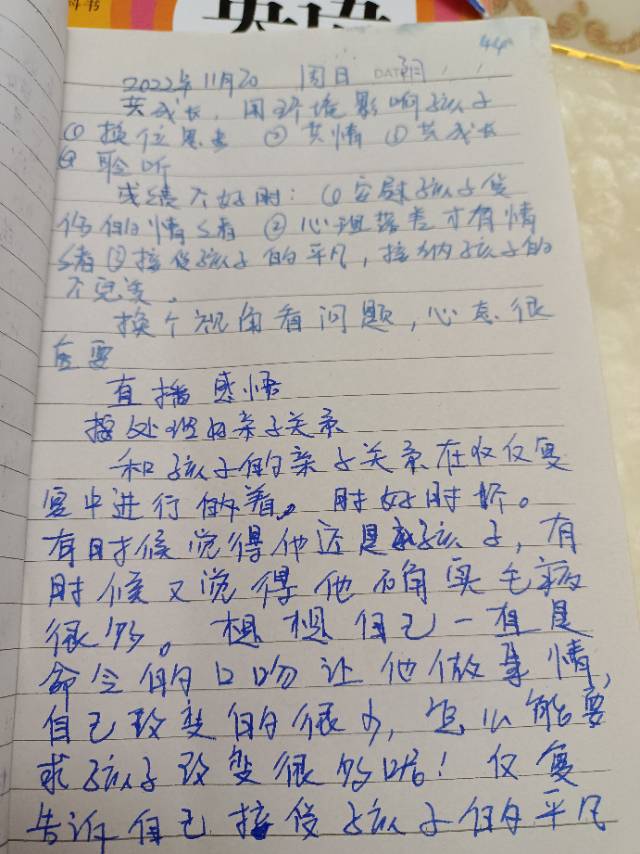 科书
英语
44
2022年11月20 周日 DATE 阴
共成长,用环境影响孩子
① 换位思考 ② 共情 ③ 共成长
④ 聆听
成绩不好时:① 安慰孩子低
落的情绪 ② 心理落差才有情
绪 ③ 接受孩子的平凡,接纳孩子的
不完美。
换个视角看问题,心态很
重要
直播感悟
接处理好亲子关系
和孩子的亲子关系在反反复
复中进行的着。时好时坏。
有时候觉得他还是孩子,有
时候又觉得他确实毛病
很多。想想自己一直是
命令的口吻让他做事情,
自己改变的很少,怎么能要
求孩子改变很多呢!反复
告诉自己接受孩子的平凡